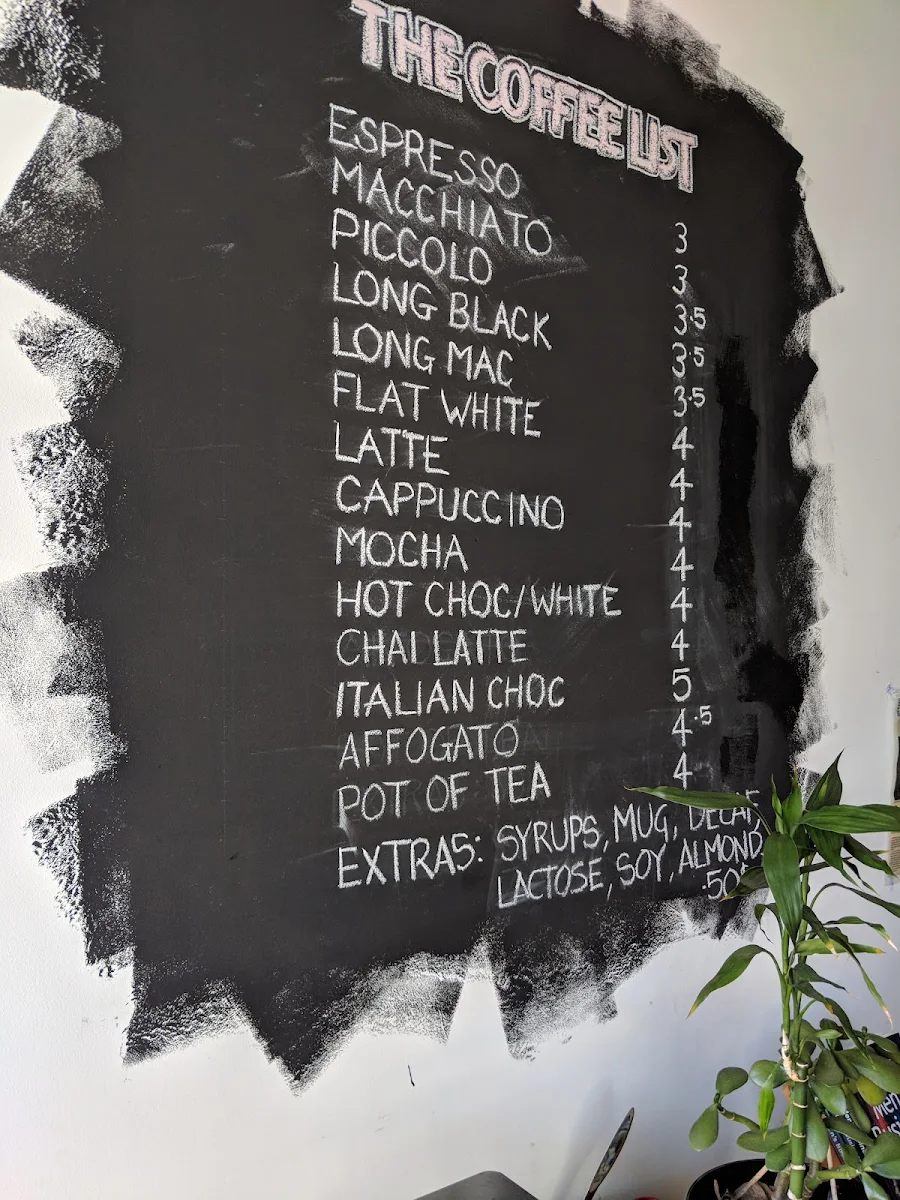 THE COFFEE LIST
ESPRESSO 3
MACCHIATO 3
PICCOLO 3.5
LONG BLACK 3.5
LONG MAC 3.5
FLAT WHITE 4
LATTE 4
CAPPUCCINO 4
MOCHA 4
HOT CHOC/WHITE 4
CHAI LATTE 4
ITALIAN CHOC 5
AFFOGATO 4.5
POT OF TEA 4
EXTRAS: SYRUPS, MUG, DECAF,
LACTOSE, SOY, ALMOND
.50